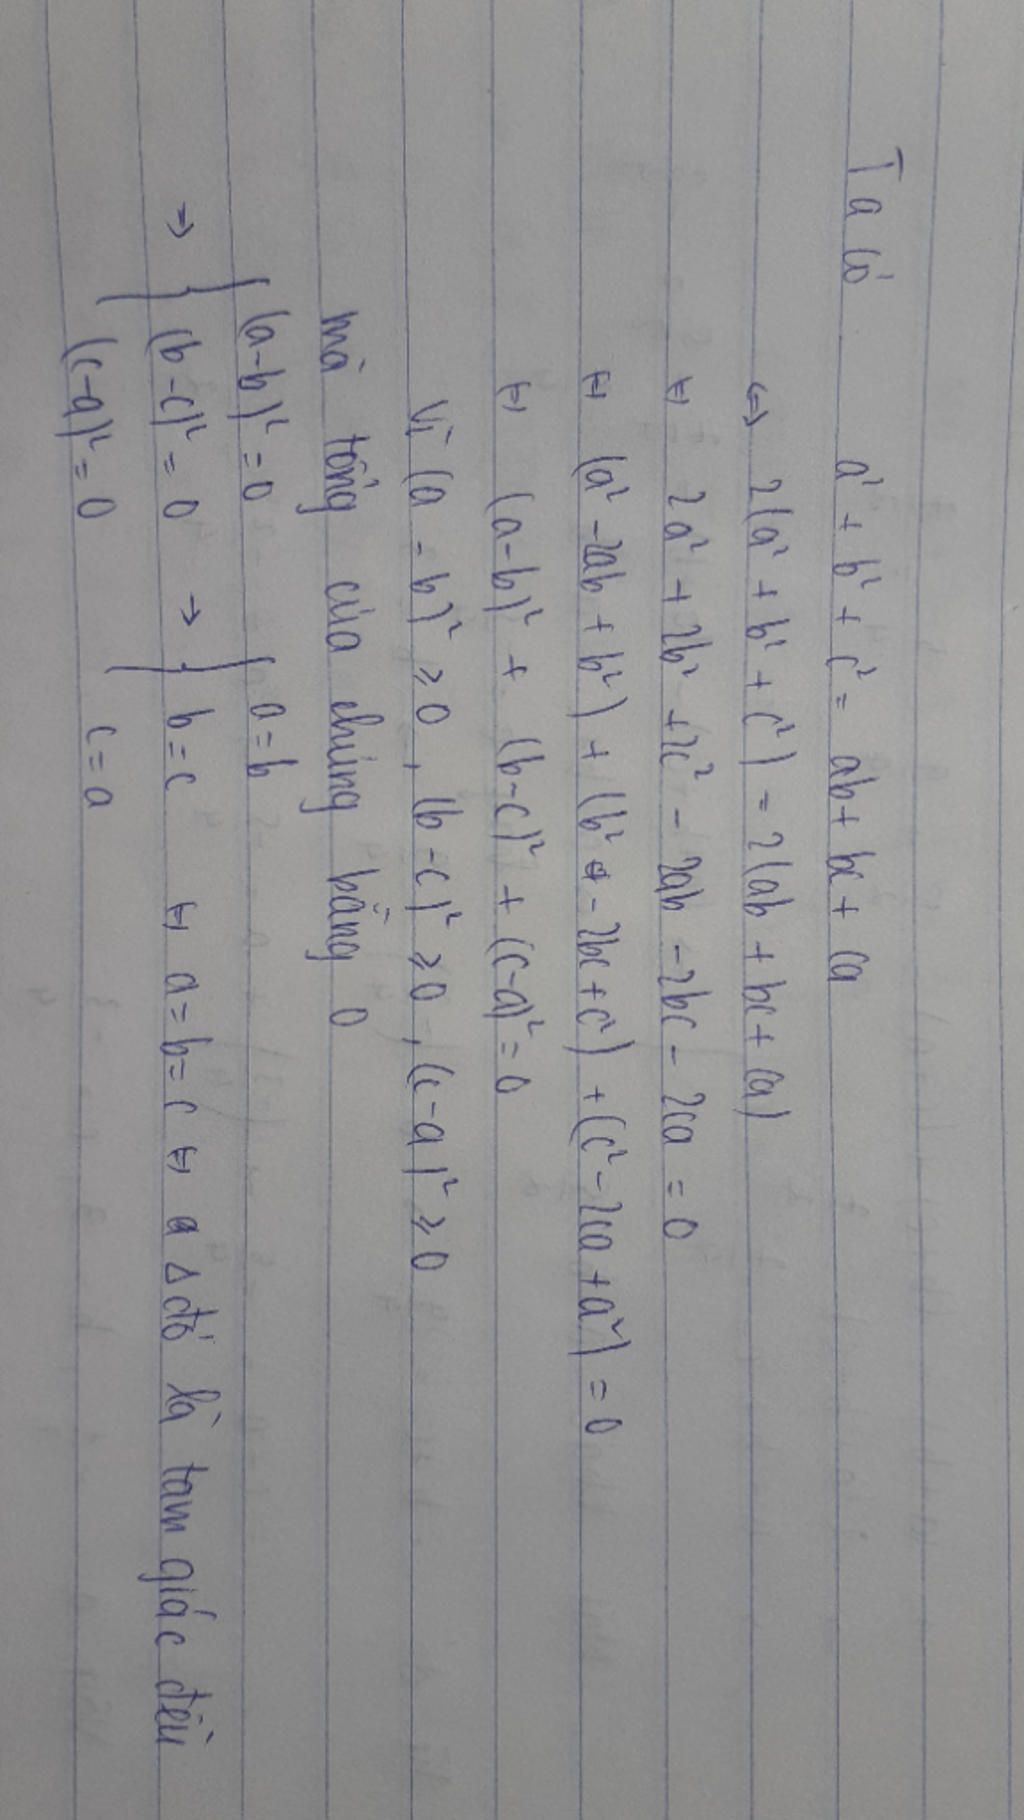 Ta có a² + b² + c² = ab + bc + ca
⇔ 2(a² + b² + c²) = 2(ab + bc + ca)
⇔ 2a² + 2b² + 2c² - 2ab - 2bc - 2ca = 0
⇔ (a² - 2ab + b²) + (b² - 2bc + c²) + (c² - 2ca + a²) = 0
⇔ (a-b)² + (b-c)² + (c-a)² = 0
Vì (a - b)² ≥ 0, (b - c)² ≥ 0, (c - a)² ≥ 0
mà tổng của chúng bằng 0
(a-b)² = 0 a = b
⇒ { (b-c)² = 0 → { b = c ⇔ a = b = c ⇔ a Δ đó là tam giác đều
(c-a)² = 0 c = a